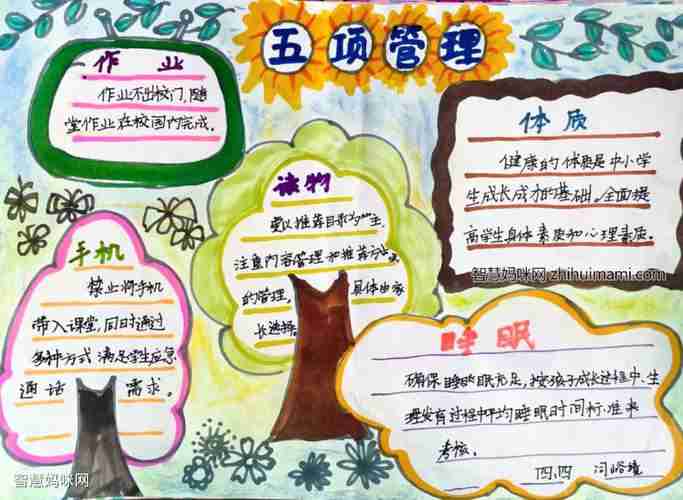 五项管理
作业
作业不出校门，随
堂作业在校园内完成。
体质
健康的体质是中小学
生成长成才的基础。全面提
高学生身体素质和心理素质。
智慧妈咪网 zhihuimami.com
读物
要以推荐目录为主，
注重内容管理和推荐方式
的管理，具体由家
长选择。
手机
禁止将手机
带入课堂，同时通过
多种方式满足学生应急
通话需求。
睡眠
确保睡眠充足，按孩子成长过程中、生
理发育过程中平均睡眠时间标准来
考核。
四、四 闫
智慧妈咪网